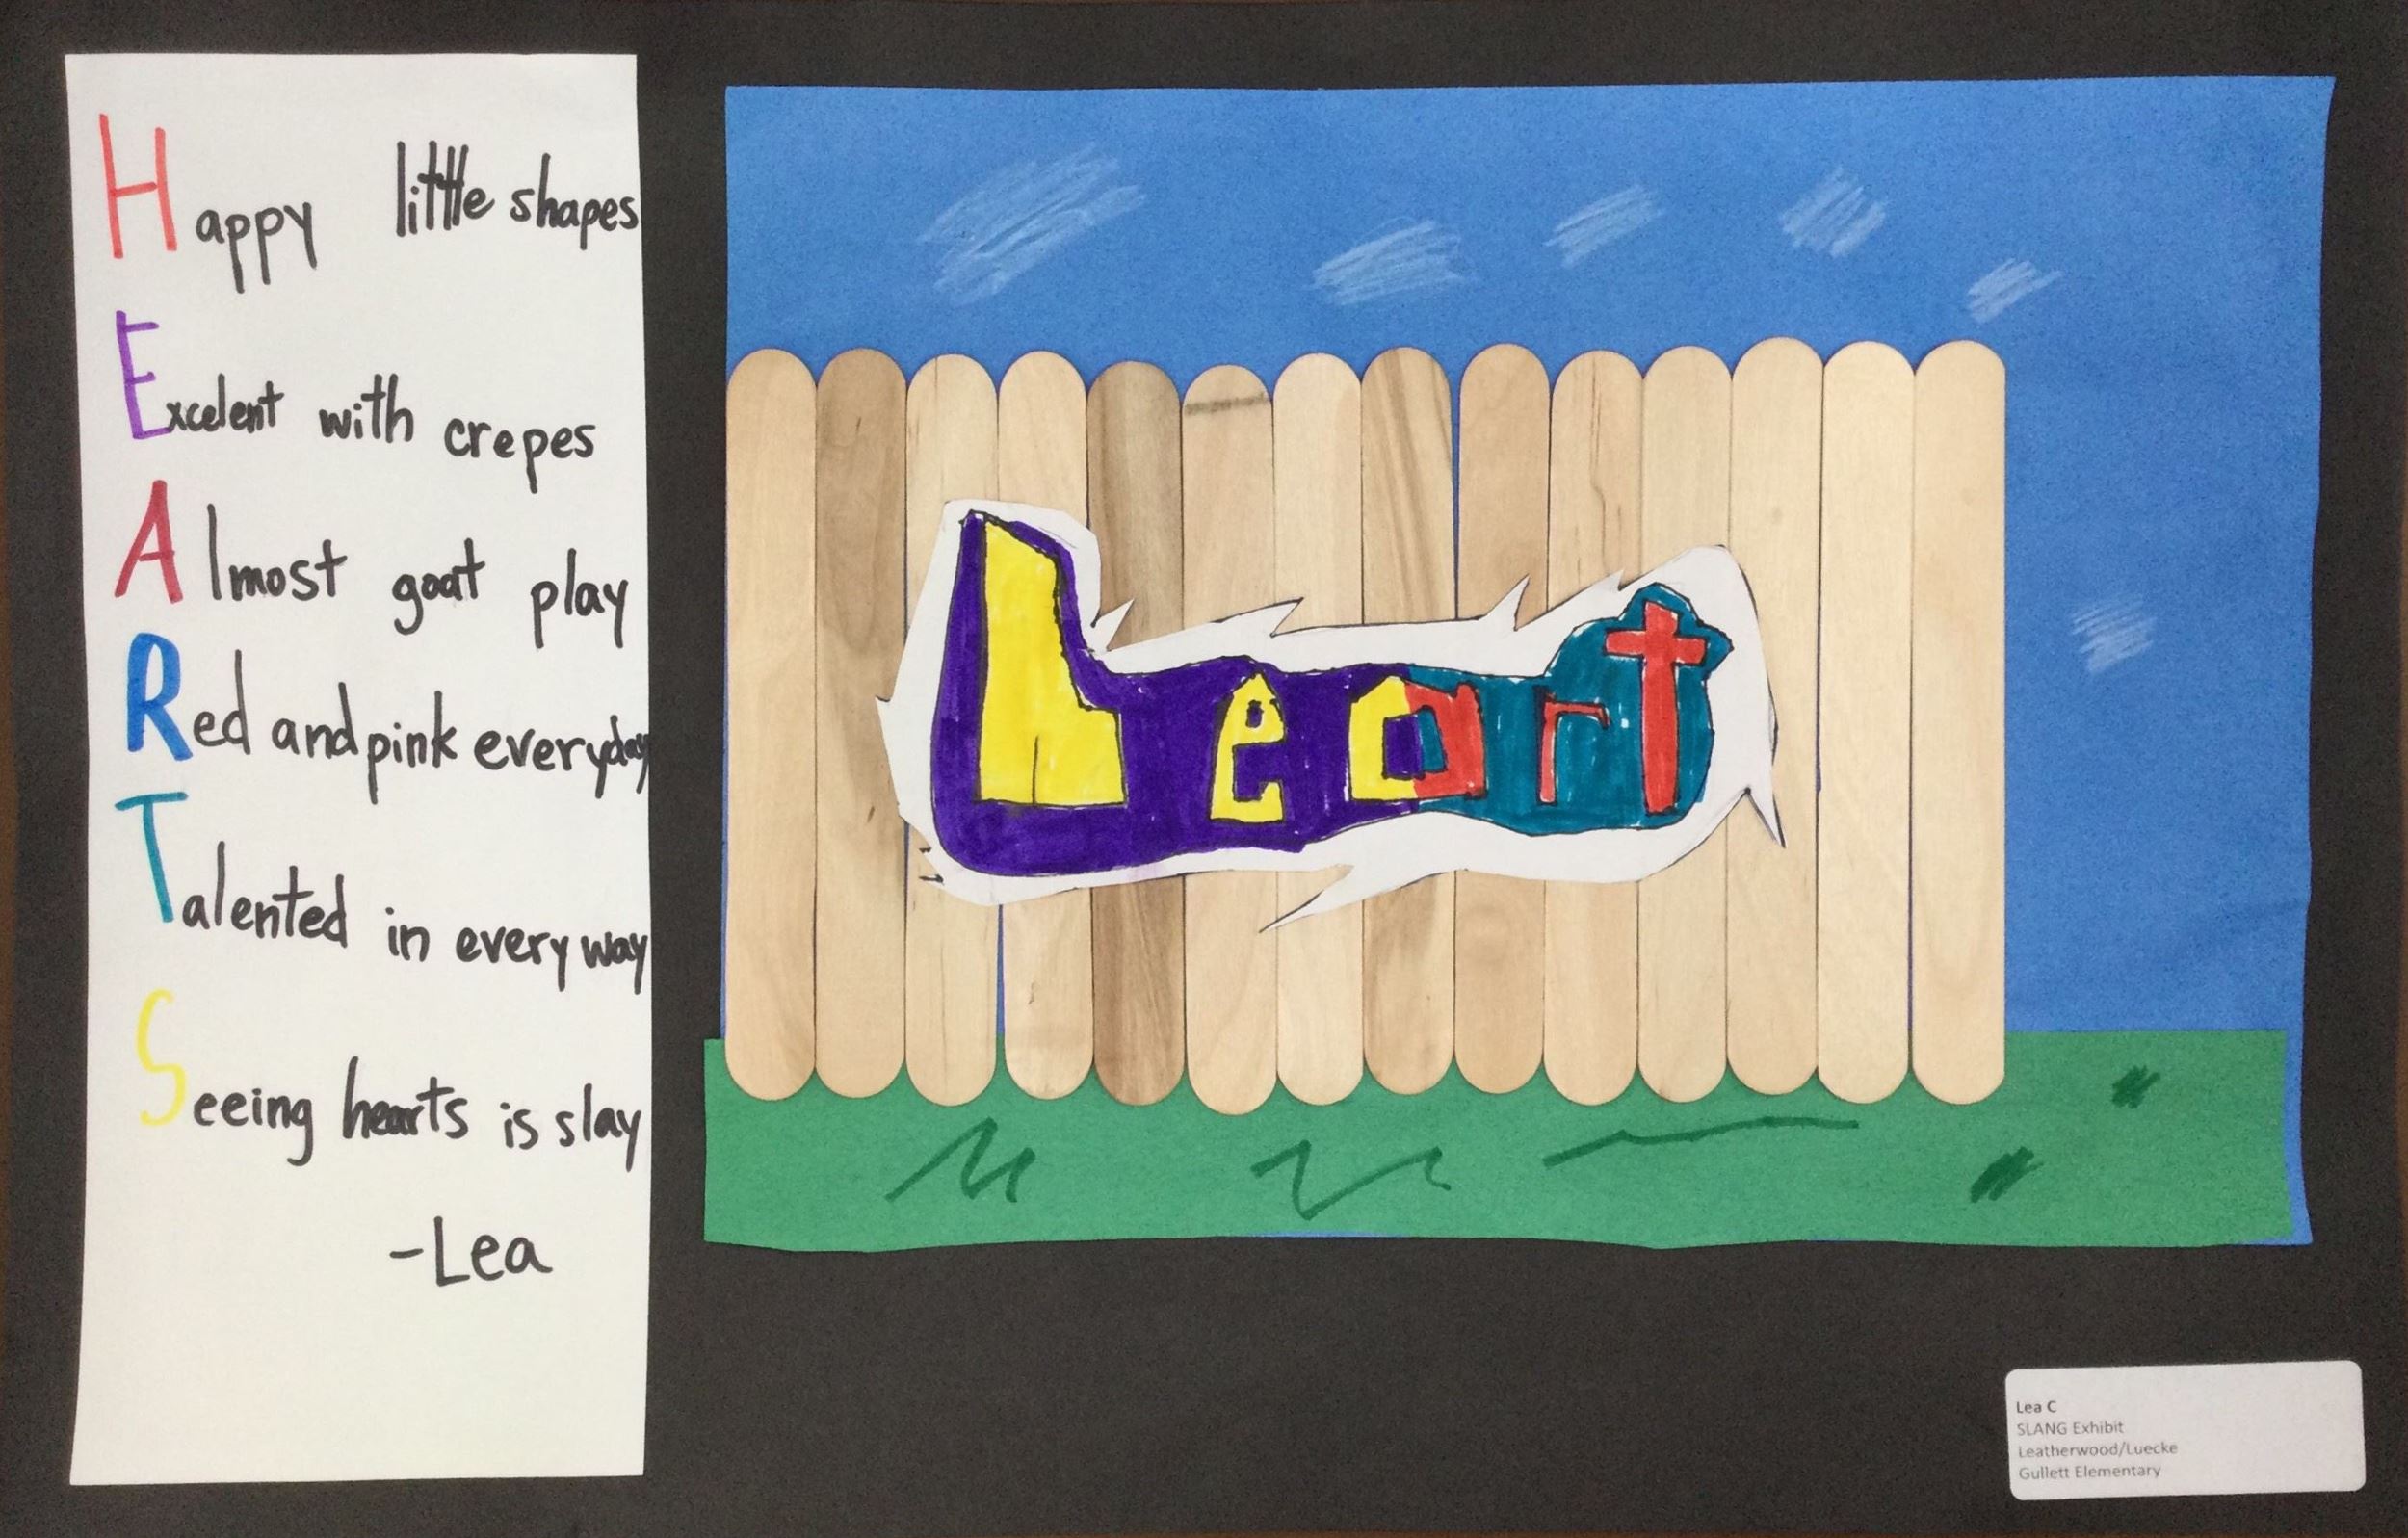 Happy little shapes
Excelent with crepes
Almost goat play
Red and pink everyday
Talented in every way
Seeing hearts is slay
-Lea
Leart
Lea C
SLANG Exhibit
Leatherwood/Luecke
Gullett Elementary